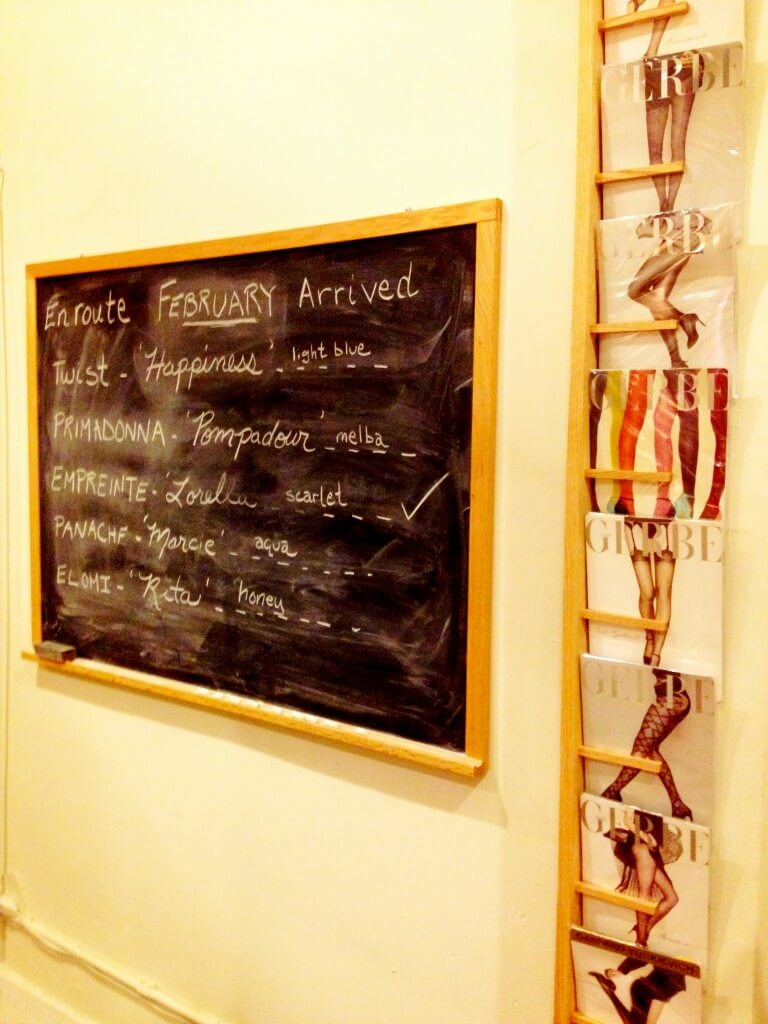 Enroute FEBRUARY Arrived
TWIST - 'Happiness' light blue
PRIMADONNA - 'Pompadour' melba
EMPREINTE - 'Lorella scarlet ✓
PANACHE - 'Marcie' aqua
ELOMI - 'Rita' honey
GERBE
GERBE
GERBE
GERBE
GERBE
GERBE